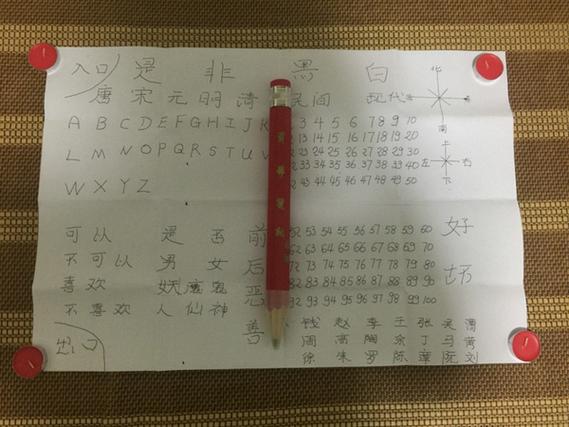 入口 是 非 黑 白 北
唐 宋 元 明 清 民间 现代
南
A B C D E F G H I J K 3 4 5 6 7 8 9 10
2 13 14 15 16 17 18 19 20
上
L M N O P Q R S T U V 2 23 24 25 26 27 28 29 30
左 右
2 33 34 35 36 37 38 39 40
下
W X Y Z 2 43 44 45 46 47 48 49 50
可以 是 否 前 52 53 54 55 56 57 58 59 60 好
62 63 64 65 66 67 68 69 70
不可以 男 女 后 72 73 74 75 76 77 78 79 80 坏
喜欢 妖 魔 鬼 恶 82 83 84 85 86 87 88 89 90
不喜欢 人 仙 神 92 93 94 95 96 97 98 99 100
善 钱 赵 李 王 张 吴 曹
出口 周 高 陶 余 丁 马 黄
徐 朱 罗 陈 章 阮 刘